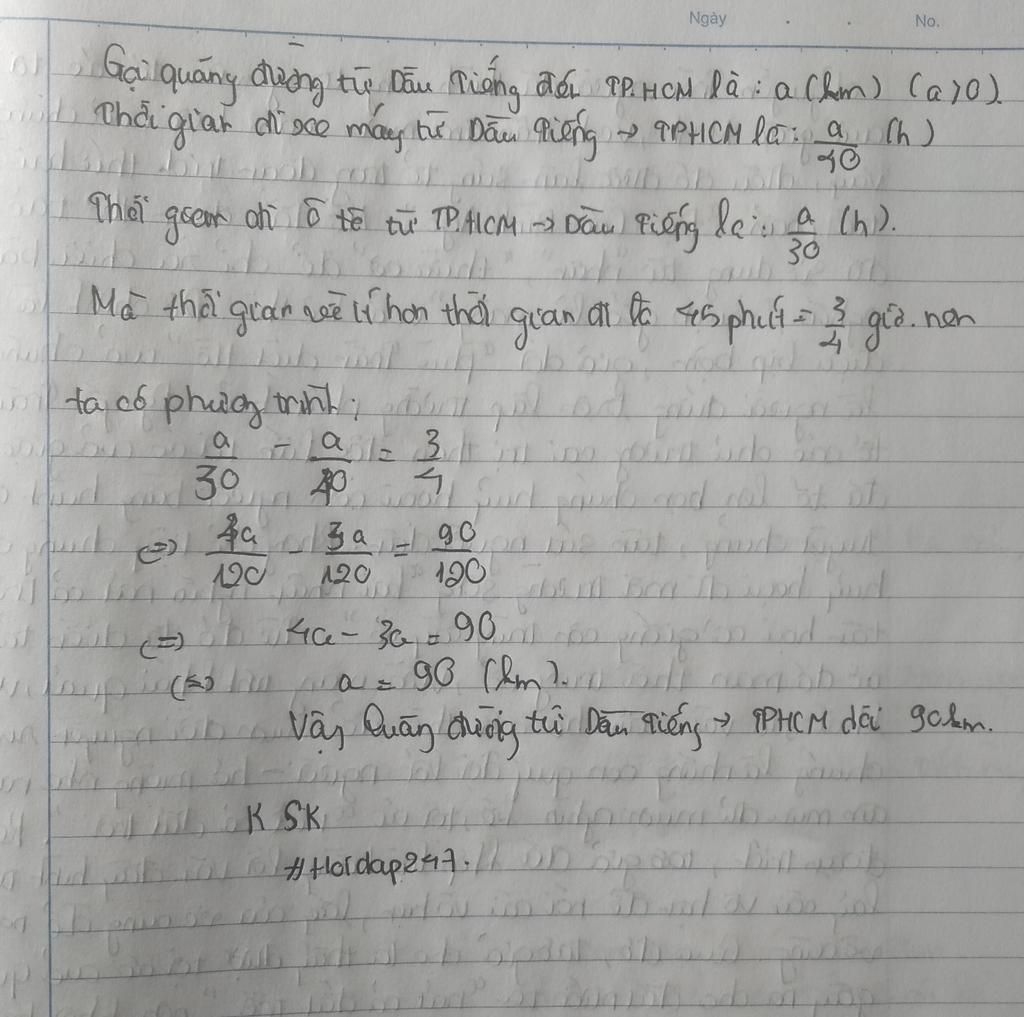 Ngày . . No.
Gọi quãng đường từ Dầu Tiếng đến TP.HCM là : a (km) (a>0).
Thời gian đi xe máy từ Dầu Tiếng → TPHCM là: a/40 (h)
Thời gian đi ô tô từ TP.HCM → Dầu Tiếng là : a/30 (h).
Mà thời gian về ít hơn thời gian đi là 45 phút = 3/4 giờ. nên
ta có phương trình:
a/30 - a/40 = 3/4
(=) 4a/120 - 3a/120 = 90/120
(=) 4a - 3a = 90
(=) a = 90 (km).
Vậy Quãng đường từ Dầu Tiếng → TPHCM dài 90km.
K SK
#Hoidap247.